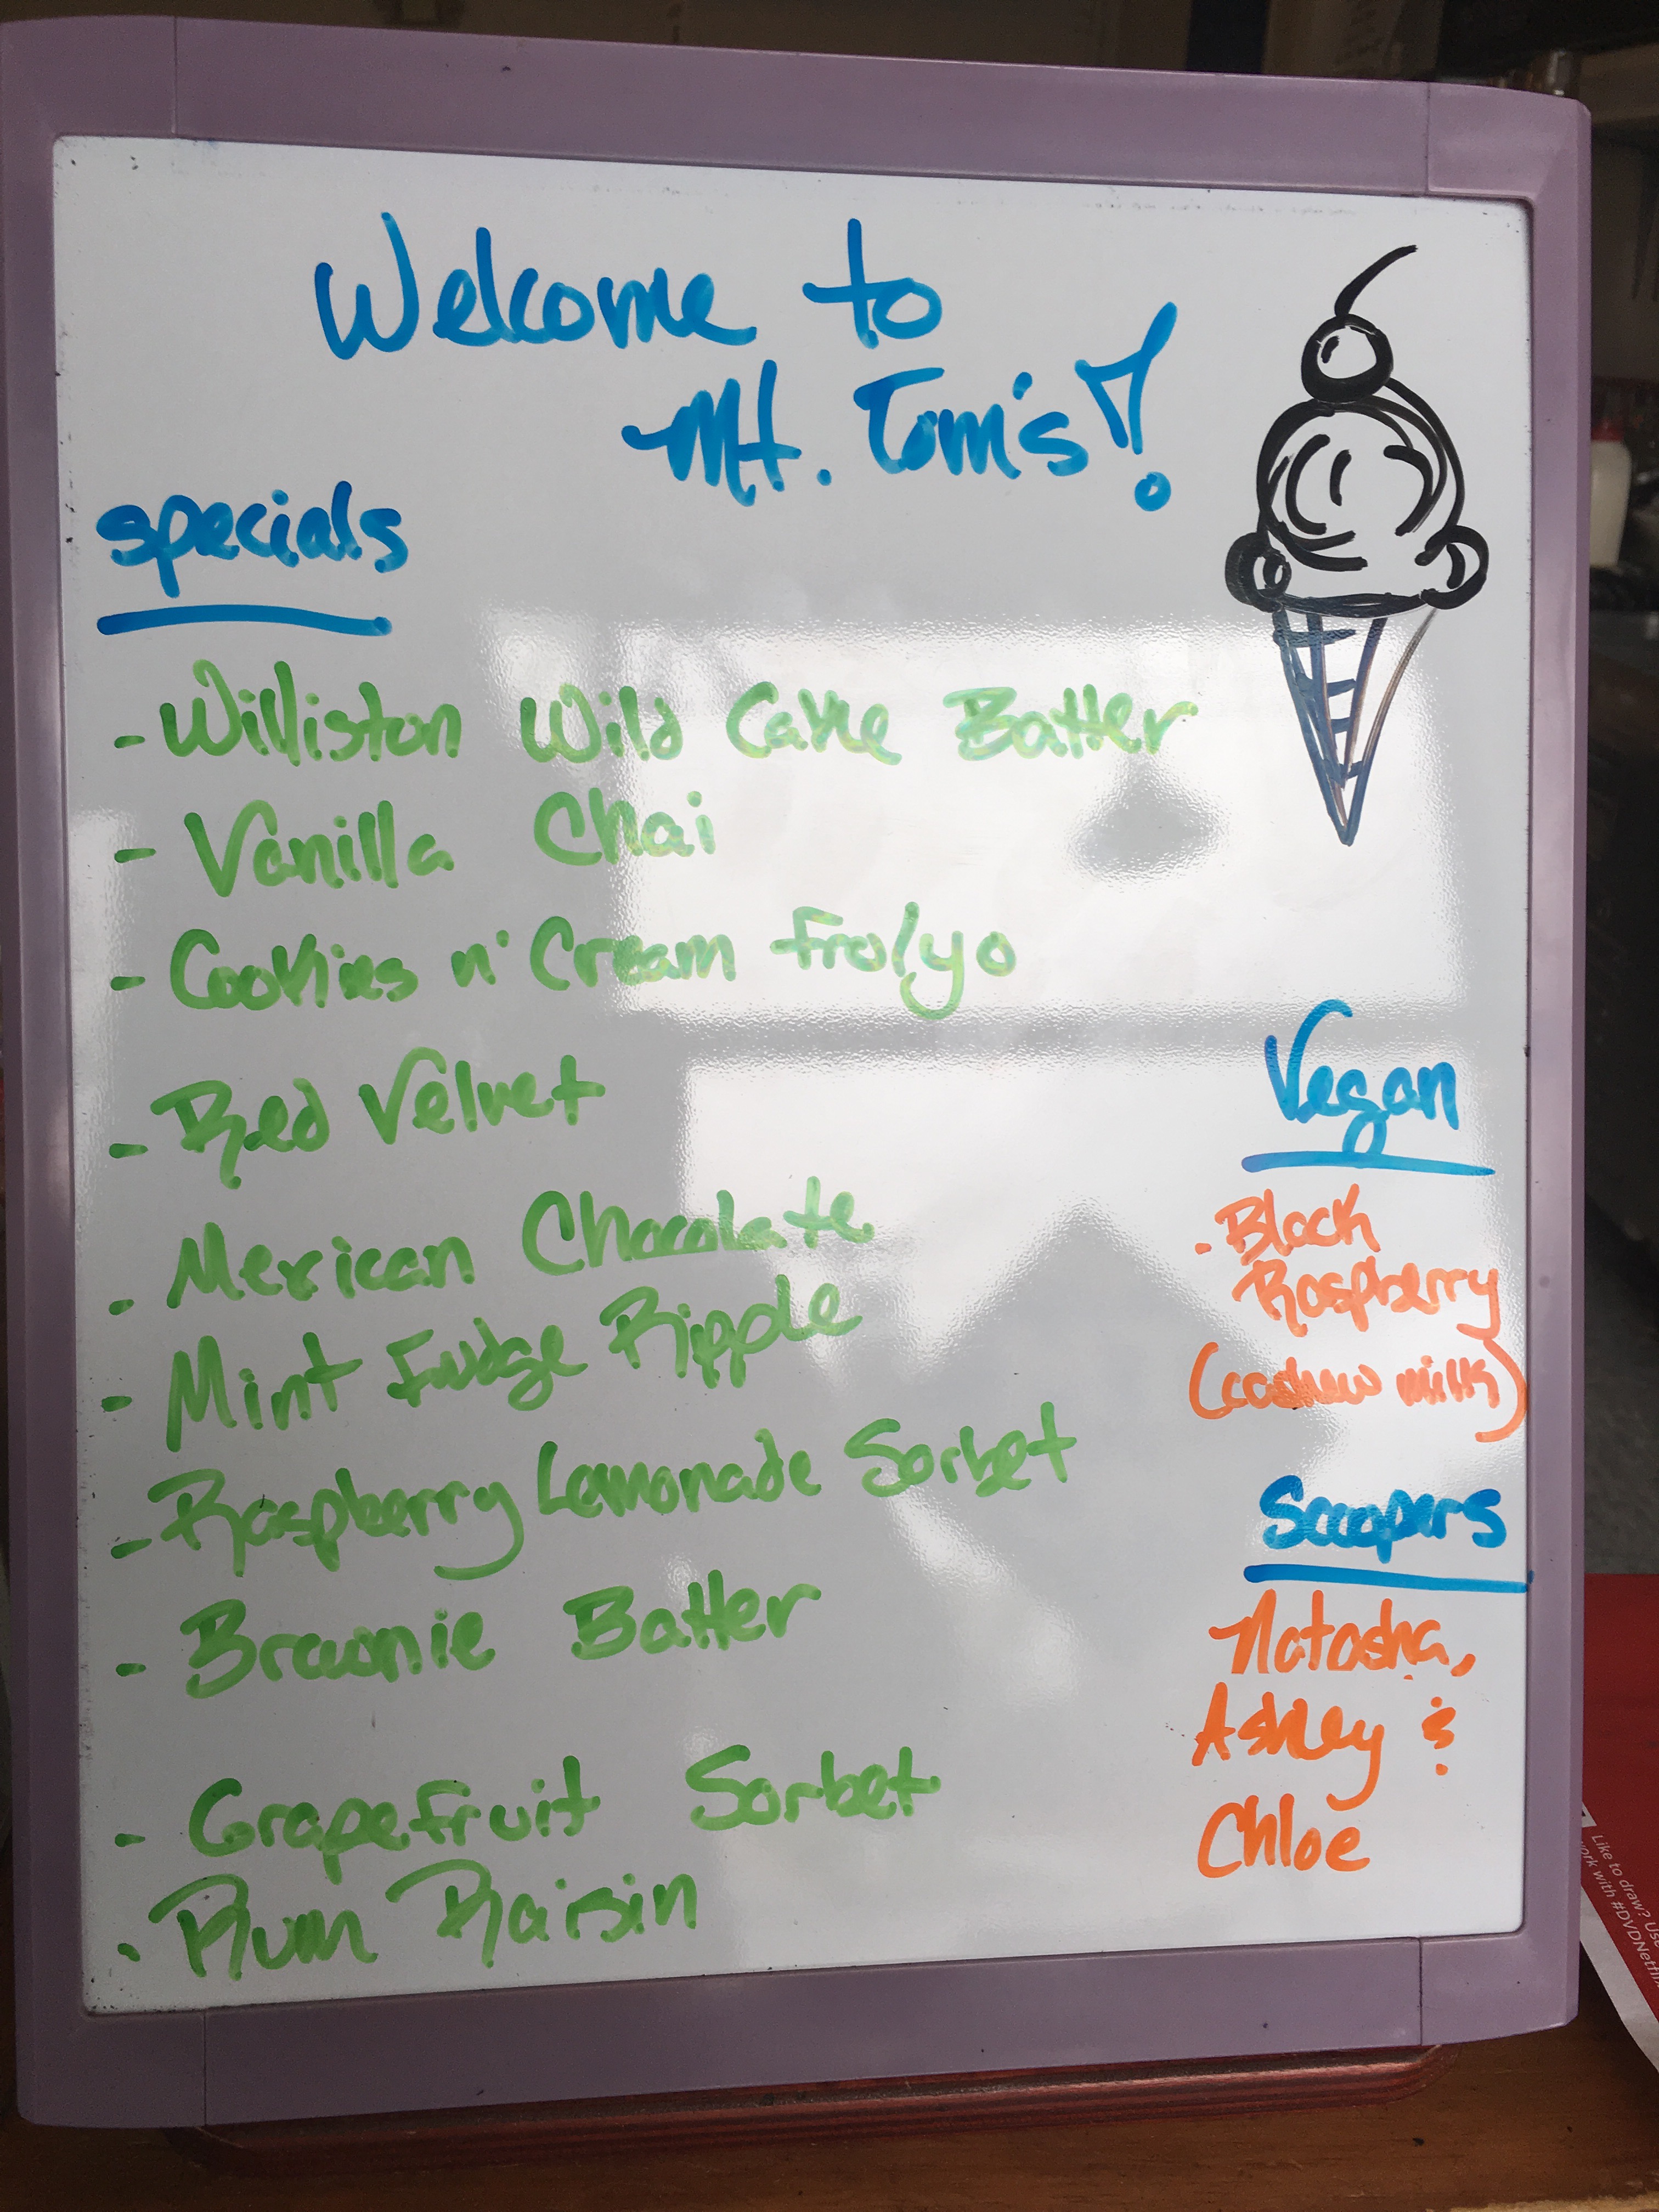 Welcome to
Mt. Tom's!
specials
- Williston Wild Cake Batter
- Vanilla Chai
- Cookies n' Cream fro/yo
- Red Velvet
- Mexican Chocolate
- Mint Fudge Ripple
- Raspberry Lemonade Sorbet
- Brownie Batter
- Grapefruit Sorbet
- Rum Raisin
Vegan
- Black
Raspberry
(cashew milk)
Scoopers
Natasha,
Ashley &
Chloe
Like to draw? Use
work with #DVDNetfli